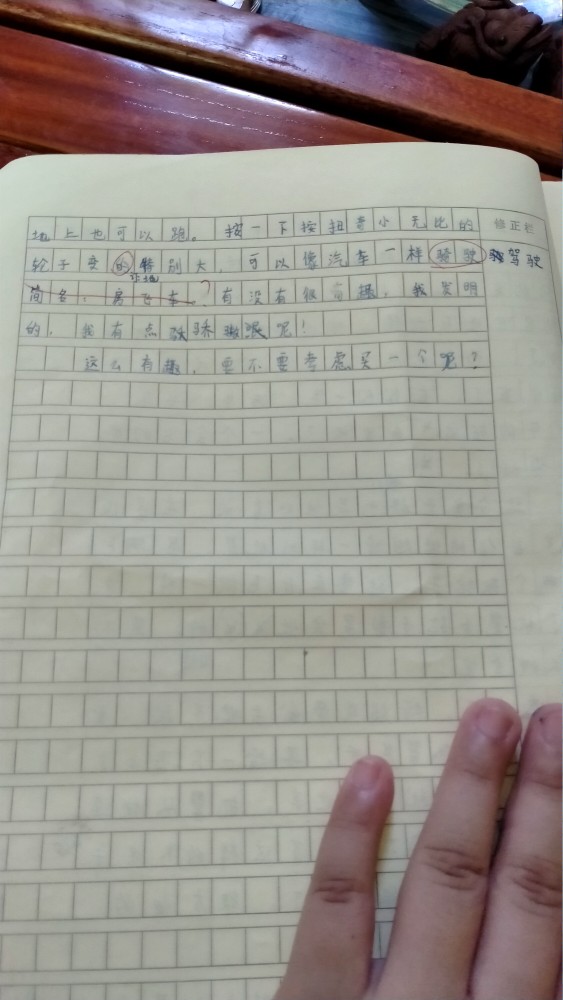 地上也可以跑。按一下按扭意小无比的 修正栏
轮子变的特别大，可以像汽车一样骑驶 驾驶
简名：房飞车 有没有很高，我发明
的，我有点骄呢！
这么有趣，要不要考虑买一个呢？